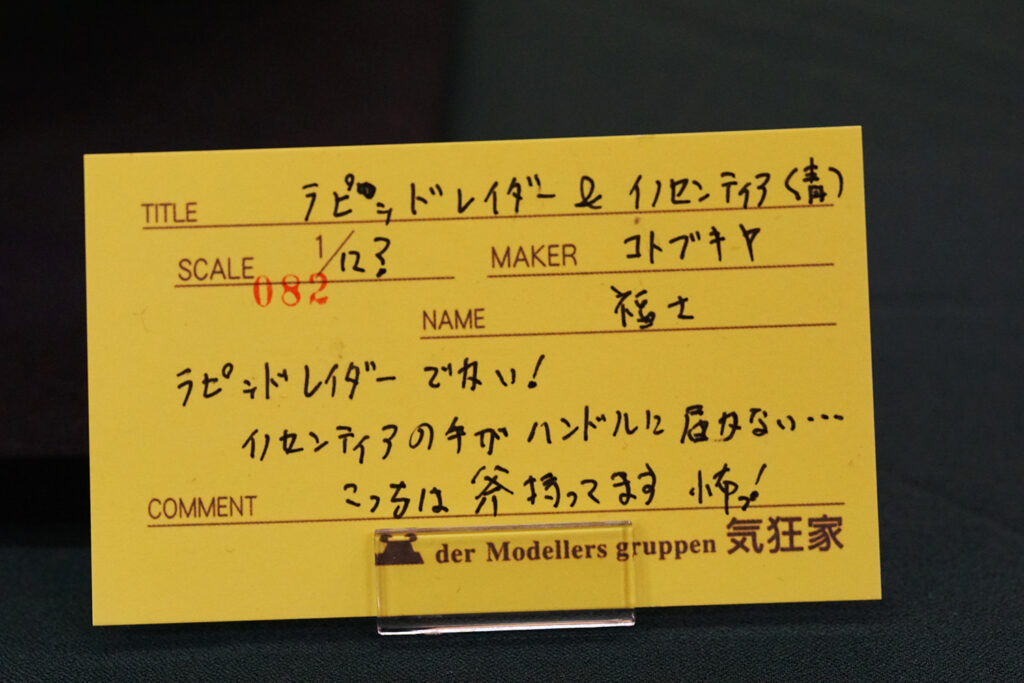 TITLE ラピッドレイダー & イノセンティア(青)
SCALE 1/12? MAKER コトブキヤ
082
NAME 福士
ラピッドレイダー でかい!
イノセンティアの手が ハンドルに 届かない…
COMMENT こっちは 斧 持ってます 怖っ!
der Modellers gruppen 気狂家